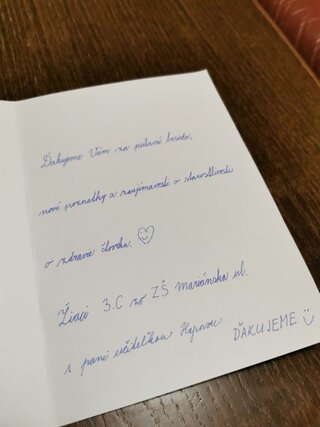 Ďakujeme Vám za pútavú besedu,
nové poznatky a zaujímavosti o starostlivosti
o zdravie človeka.
Žiaci 3.C zo ZŠ Mariánska ul.
s pani učiteľkou Hajovou
ĎAKUJEME